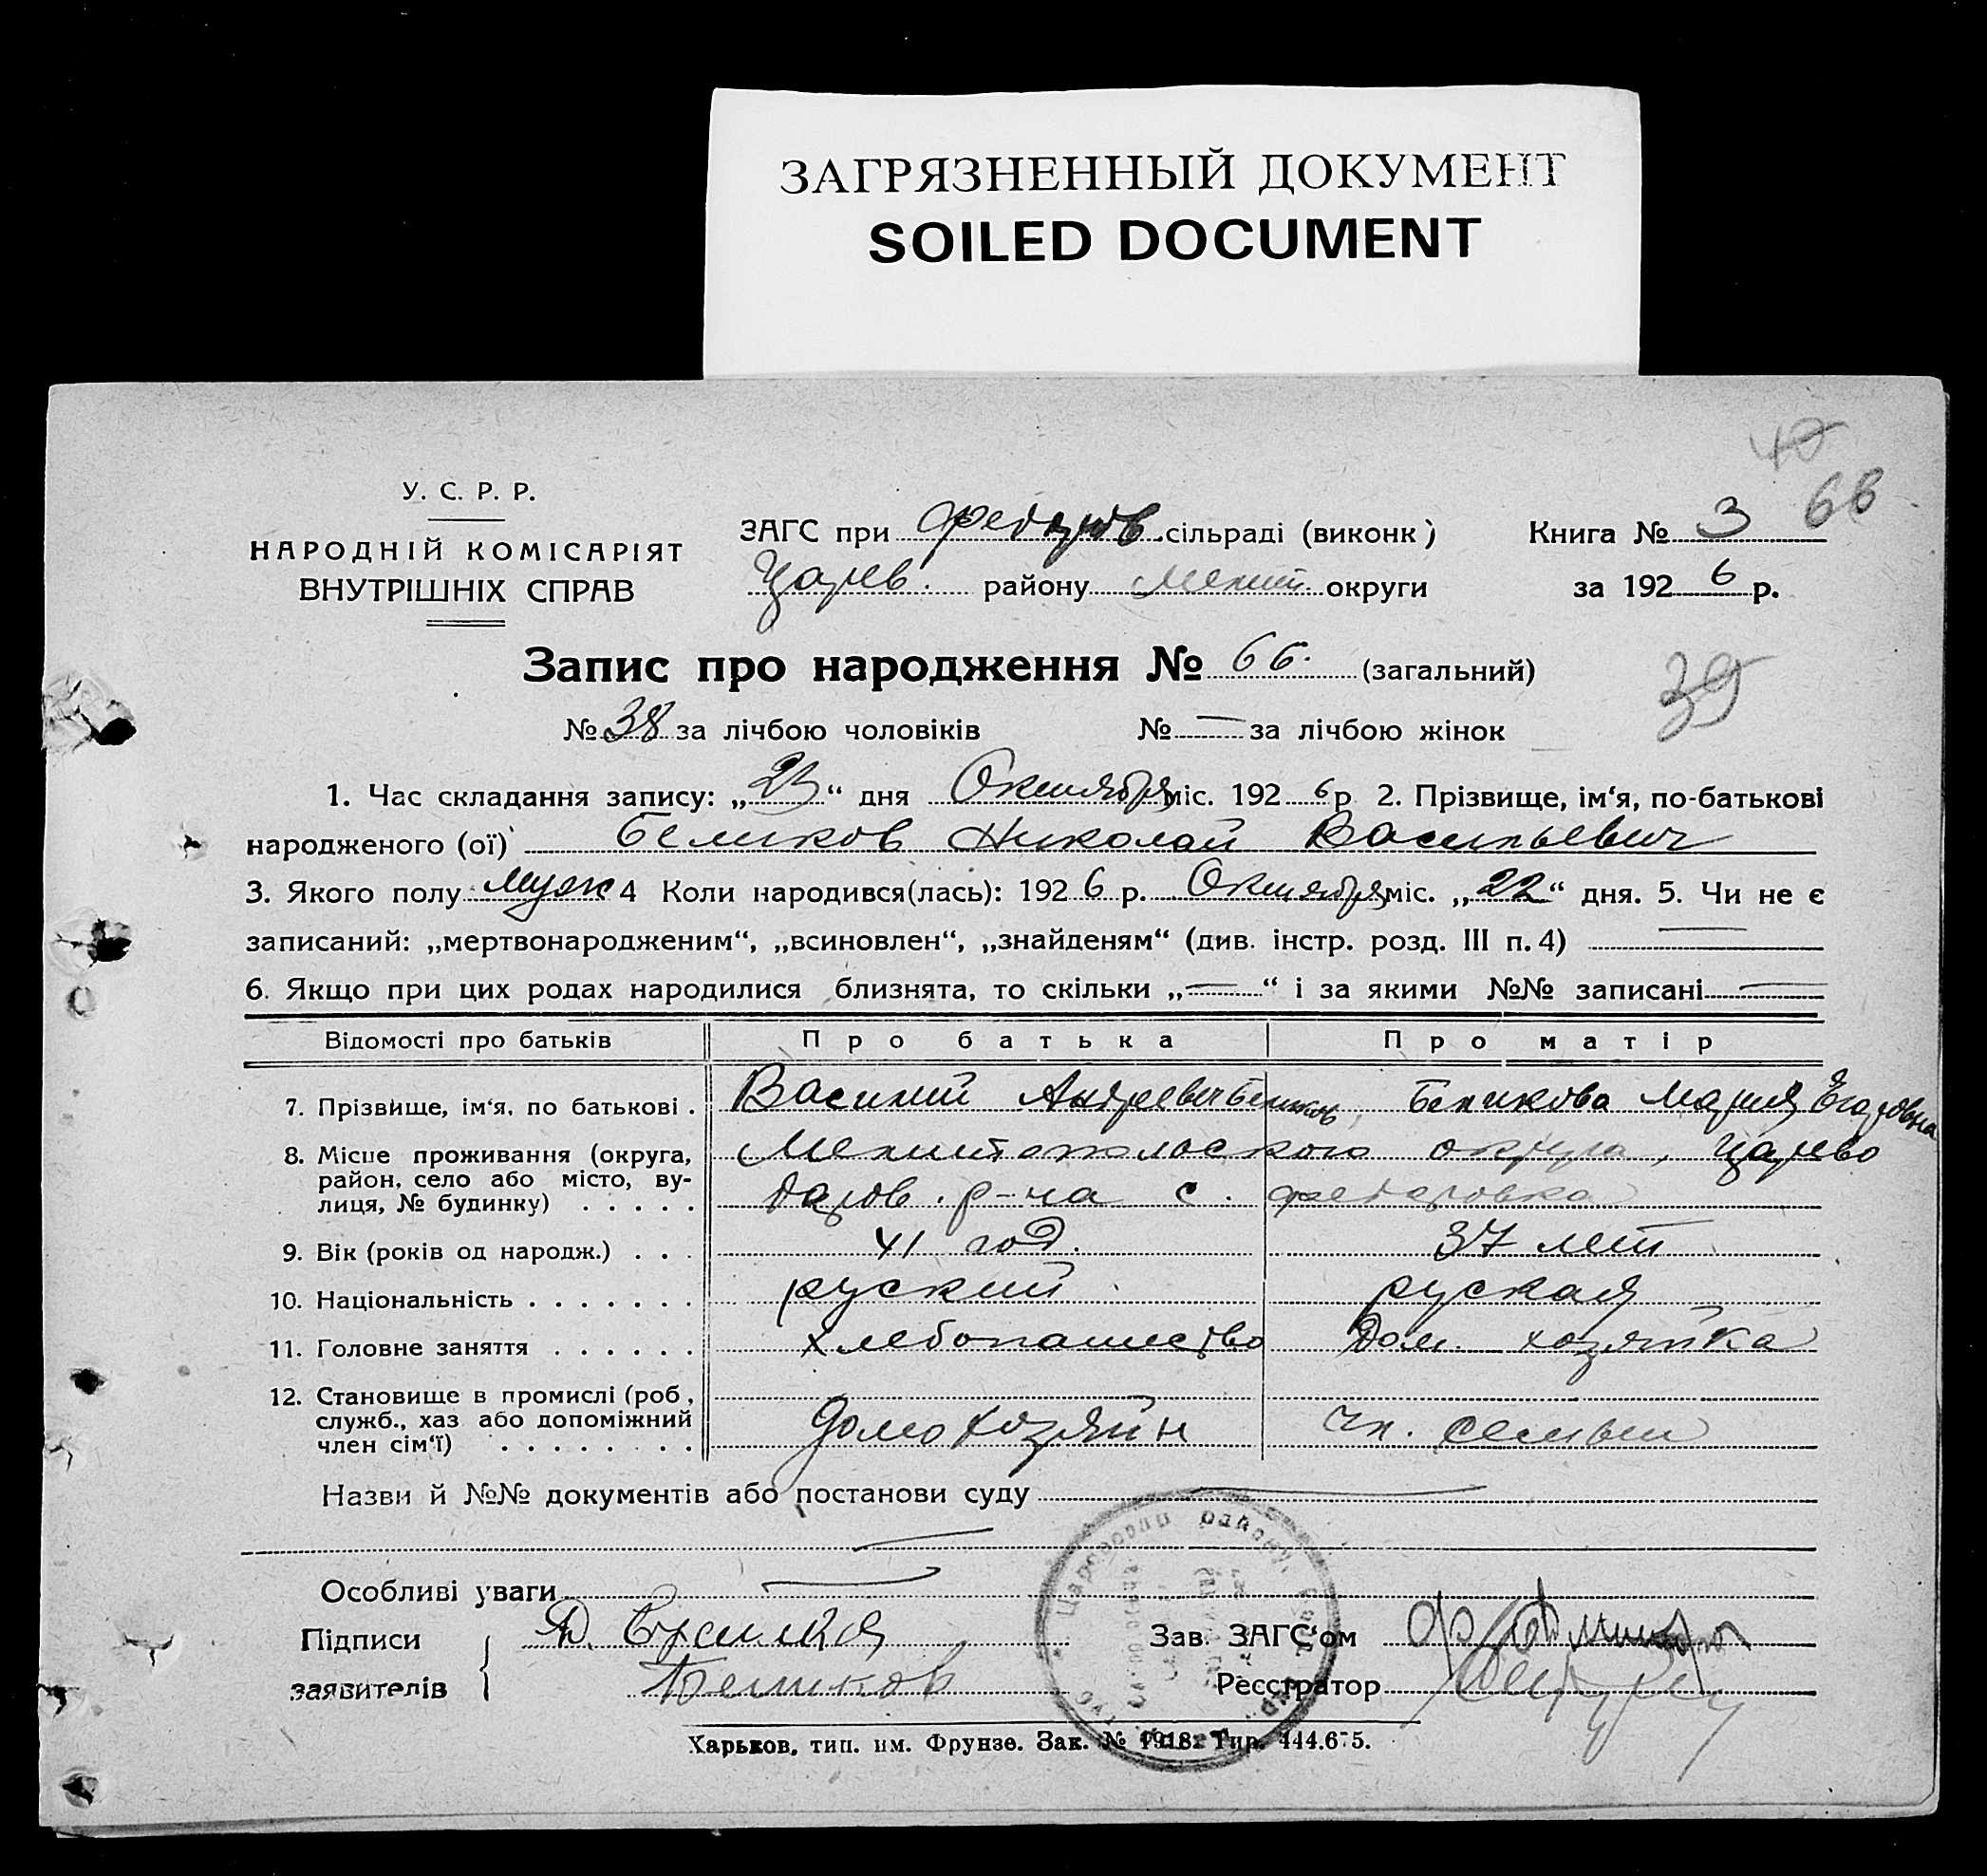 ЗАГРЯЗНЕННЫЙ ДОКУМЕНТ
SOILED DOCUMENT
40
66
У. С. Р. Р.
НАРОДНІЙ КОМІСАРІЯТ
ВНУТРІШНІХ СПРАВ
ЗАГС при Федоров. сільраді (виконк)
Царев. району Мелит. округи
Книга № 3
за 1926 р.
Запис про народження № 66. (загальний)
39
№ 38 за лічбою чоловіків № — за лічбою жінок
1. Час складання запису: „23“ дня Октября міс. 1926 р 2. Прізвище, ім‘я, по-батькові
народженого (ої) Беликов Николай Васильевич
3. Якого полу муж 4 Коли народився(лась): 1926 р. Октября міс. „22“ дня. 5. Чи не є
записаний: „мертвонародженим“, „всиновлен“, „знайденям“ (див. інстр. розд. III п. 4) —
6. Якщо при цих родах народилися близнята, то скільки „—“ і за якими №№ записані —
Відомості про батьків Про батька Про матір
7. Прізвище, ім‘я, по батькові . Василий Андреевич Беликов, Беликова Мария Егоровна
8. Місце проживання (округа, район, село або місто, вулиця, № будинку) . . . . . Мелитопольского округа, Царево
Даров. р-на с. Федоровка
9. Вік (років од народж.) . . . 41 год. 37 лет
10. Національність . . . . . . . руский руская
11. Головне заняття . . . . . . хлебопашество Дом. хозяйка
12. Становище в промислі (роб, служб., хаз або допоміжний член сім‘ї) . . . . . . . . домохозяин чл. семьи
Назви й №№ документів або постанови суду —
Особливі уваги
Підписи
заявителів
Беликов
Зав. ЗАГС‘ом
Реєстратор
району
Харьков, тип. им. Фрунзе. Зак. № 1918. Тир.